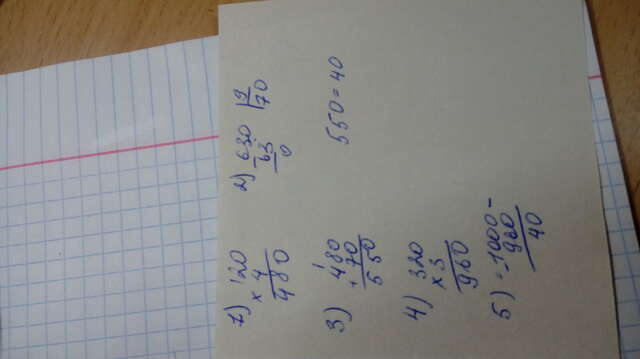 1) 120
× 4
480
2) 630 | 9
63 70
0
3) 1
480
+ 70
550
550 = 40
4) 320
× 3
960
5) = 1000 -
- 960
40